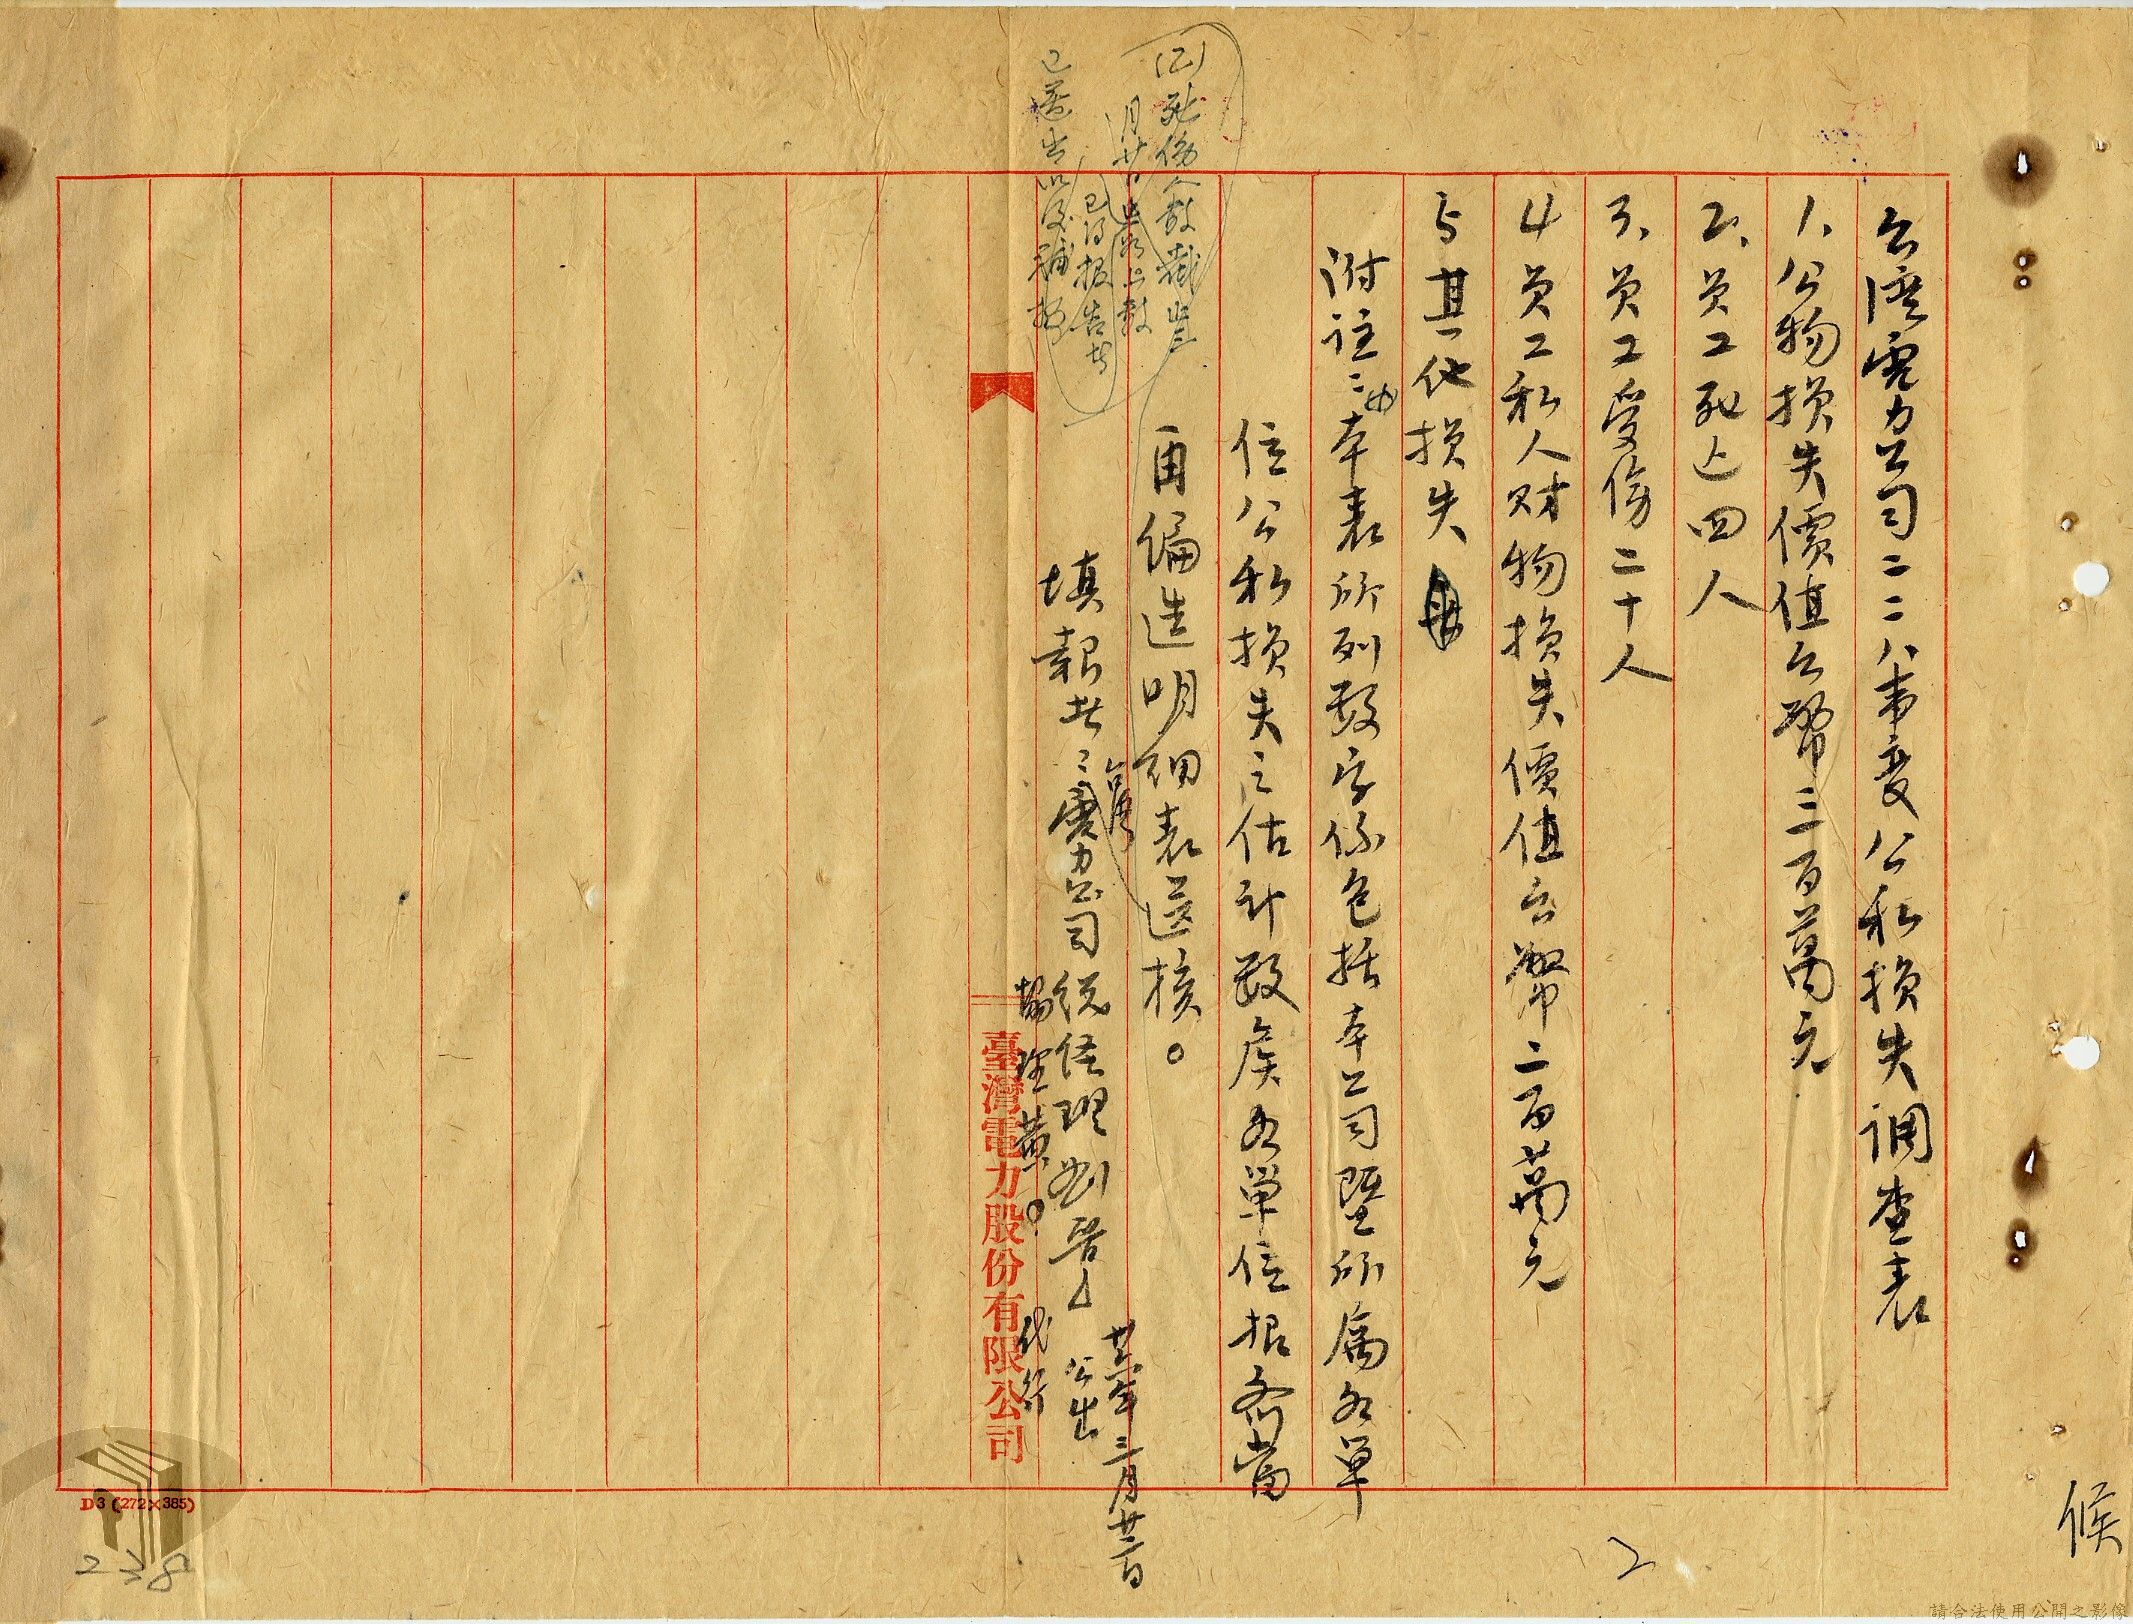 台灣電力公司二二八事变公私损失调查表
1、公物损失價值台幣三百萬元
2、員工死亡四人
3、員工受傷二十人
4 員工私人财物损失價值台幣二百萬元
5 其他损失
附註：(1)本表所列数字係包括本公司暨所屬各單
位公私损失之估計数俟各單位报齊當
再编造明细表送核。
(2)死傷人数截止三
月廿日止
已得报告者
已送出以後補报
填報者：台灣電力公司總经理劉晉 公出
協理黄。代行
卅六年三月廿二日
臺灣電力股份有限公司
D3 (272×385)
238
2
候
請合法使用公開之影像